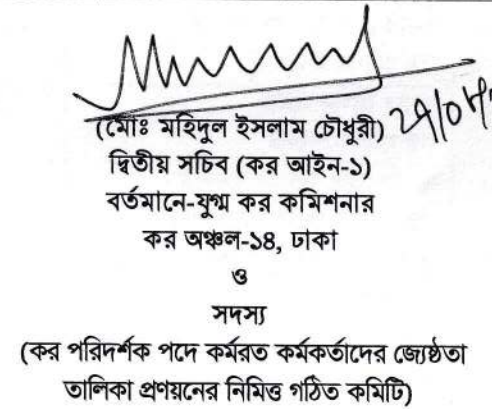 (মোঃ মহিদুল ইসলাম চৌধুরী)
দ্বিতীয় সচিব (কর আইন-১)
বর্তমানে-যুগ্ম কর কমিশনার
কর অঞ্চল-১৪, ঢাকা
ও
সদস্য
(কর পরিদর্শক পদে কর্মরত কর্মকর্তাদের জ্যেষ্ঠতা
তালিকা প্রণয়নের নিমিত্ত গঠিত কমিটি)